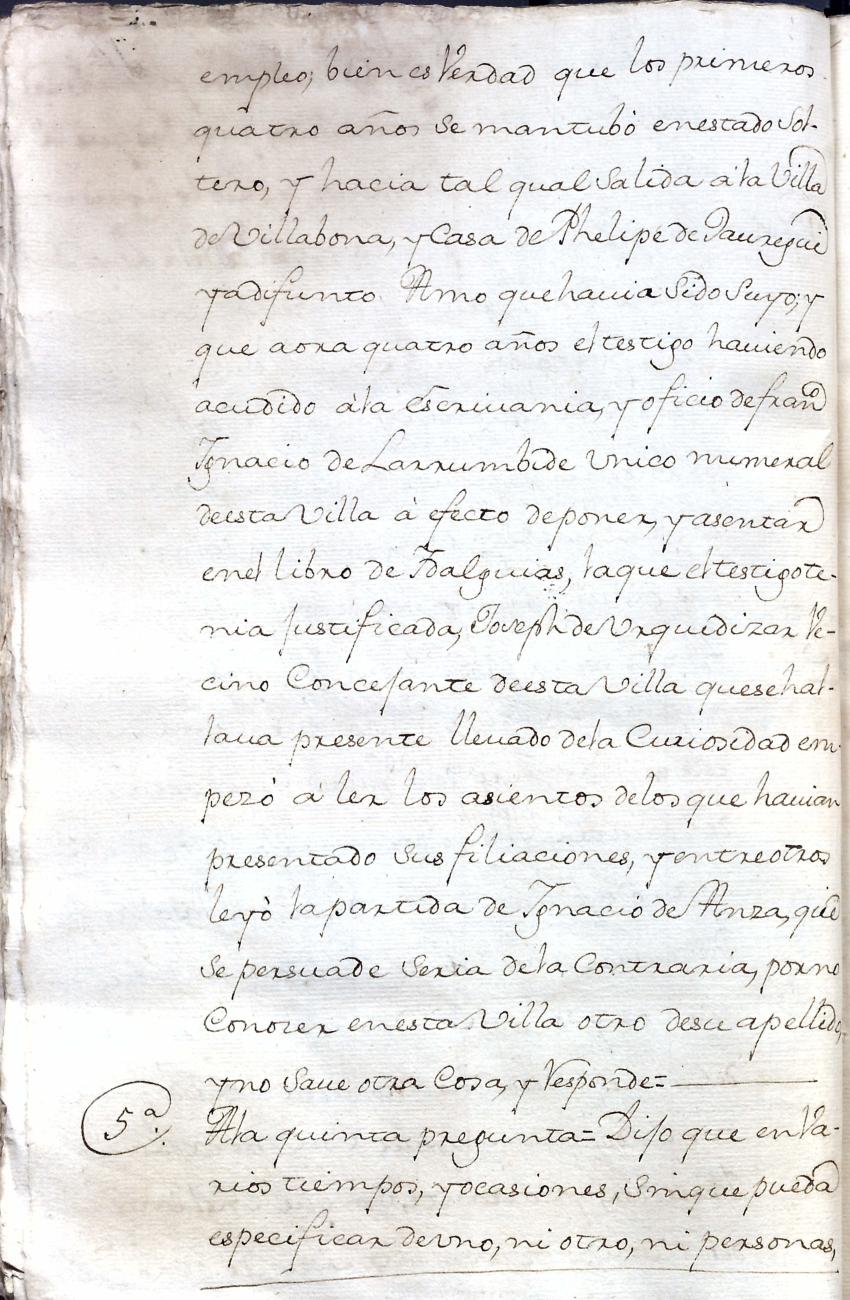 empleo; bien es Verdad que los primeros
quatro años se mantubó en estado Sol-
tero, y hacia tal qual Salida á la Villa
de Villabona, y Casa de Phelipe de Jauregui
ya difunto Amo que hauia Sido Suyo; y
que aora quatro años el testigo hauiendo
acudido á la Escriuania, y oficio de fran.co
Ignacio de Larrumbide Vnico numeral
de esta Villa á efecto de poner, y asentar
en el libro de Idalguias, la que el testigo te-
nia Justificada, Joseph de Vrquidizar Ve-
cino Concejante de esta Villa que se hal-
laua presente lleuado de la Curiosidad em-
pezó á ler los asientos de los que hauian
presentado Sus filiaciones, y entre otros
leyó la partida de Ignacio de Anza, que
Se persuade Seria de la Contraria, por no
Conozer en esta Villa otro de su apellido,
y no Saue otra Cosa, y Responde=
5.a A la quinta pregunta= Dijo que en Va-
rios tiempos, y ocasiones, Sin que pueda
especificar de vno, ni otro, ni personas,